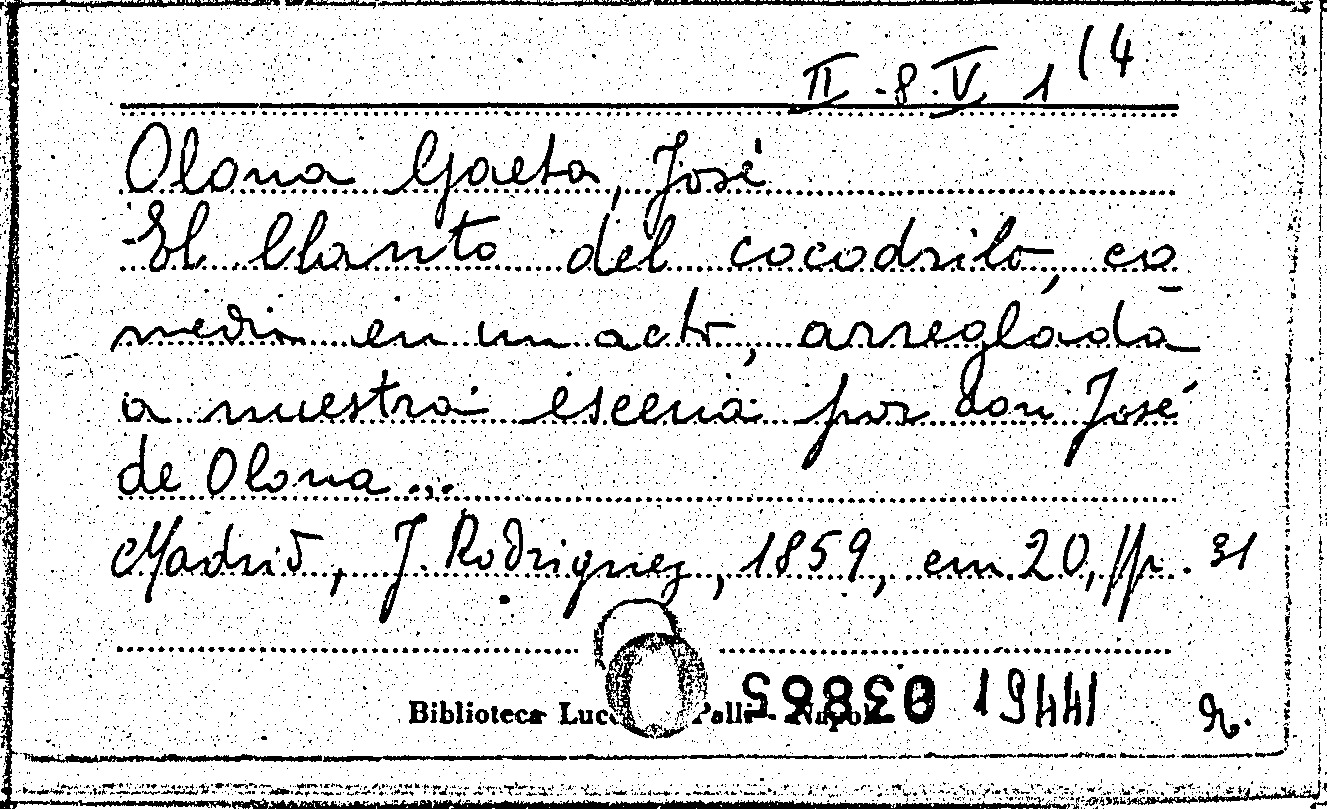 II - 8. V 1 (4
Olona Gaeta, José
El llanto del cocodrilo, co
media en un acto, arreglada
a nuestra escena por don José
de Olona...
Madrid, J. Rodriguez, 1859, cm 20, pp. 31
Biblioteca